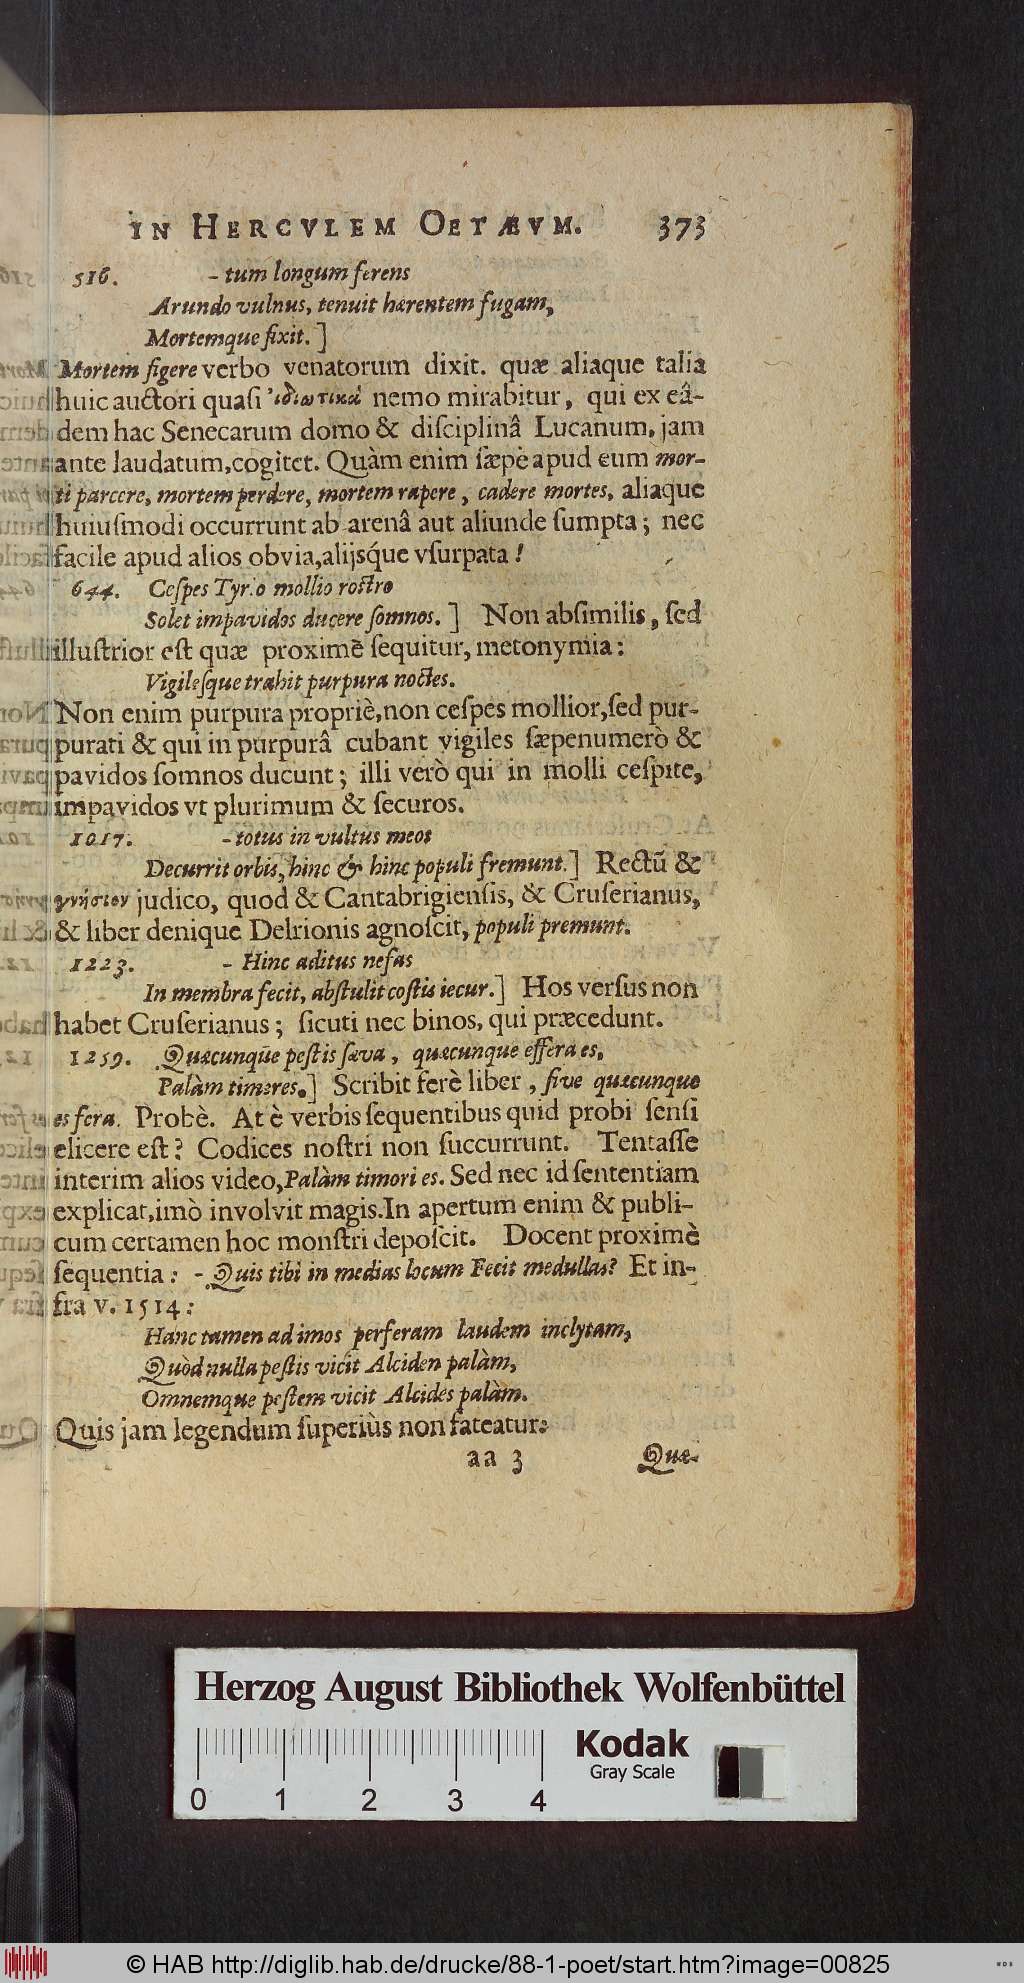 IN HERCVLEM OETÆVM. 373
516. - tum longum ferens
Arundo vulnus, tenuit hærentem fugam,
Mortemque fixit.]
Mortem figere verbo venatorum dixit. quæ aliaque talia
huic auctori quasi ἰδιωτικά nemo mirabitur, qui ex eâ-
dem hac Senecarum domo & disciplinâ Lucanum, jam
ante laudatum, cogitet. Quàm enim sæpè apud eum mor-
ti parcere, mortem perdere, mortem rapere, cadere mortes, aliaque
huiusmodi occurrunt ab arenâ aut aliunde sumpta; nec
facile apud alios obvia, alijsq́ue vsurpata!
644. Cespes Tyrio mollio rostro
Solet impavidos ducere somnos.] Non absimilis, sed
illustrior est quæ proximè sequitur, metonymia:
Vigilesque trahit purpura noctes.
Non enim purpura propriè, non cespes mollior, sed pur-
purati & qui in purpurâ cubant vigiles sæpenumerò &
pavidos somnos ducunt; illi verò qui in molli cespite,
impavidos vt plurimum & securos.
1017. - totus in vultus meos
Decurrit orbis, hinc & hinc populi fremunt.] Rectū &
γνήσιον judico, quod & Cantabrigiensis, & Cruserianus,
& liber denique Delrionis agnoscit, populi premunt.
1223. - Hinc aditus nefas
In membra fecit, abstulit costis iecur.] Hos versus non
habet Cruserianus; sicuti nec binos, qui præcedunt.
1259. Quæcunque pestis sæva, quæcunque effera es,
Palàm timeres.] Scribit ferè liber, sive quæcunque
es fera. Probè. At è verbis sequentibus quid probi sensi
elicere est? Codices nostri non succurrunt. Tentasse
interim alios video, Palàm timori es. Sed nec id sententiam
explicat, imò involvit magis. In apertum enim & publi-
cum certamen hoc monstri deposcit. Docent proximè
sequentia: - Quis tibi in medias locum Fecit medullas? Et in-
fra v. 1514:
Hanc tamen ad imos perferam laudem inclytam,
Quòd nulla pestis vicit Alciden palàm,
Omnemque pestem vicit Alcides palàm.
Quis jam legendum superiùs non fateatur:
aa 3 Quæ-
Herzog August Bibliothek Wolfenbüttel
Kodak
Gray Scale
0 1 2 3 4
© HAB http://diglib.hab.de/drucke/88-1-poet/start.htm?image=00825